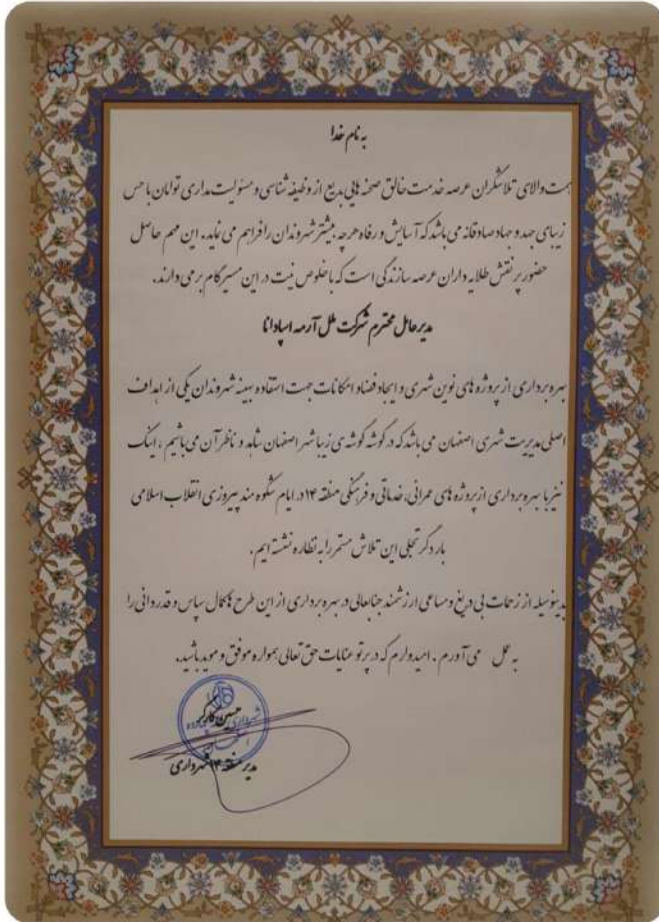 به نام خدا
همت والای تلاشگران عرصه خدمت خالق صحنه هایی بدیع از وظیفه شناسی و مسئولیت مداری توامان با حس
زیبای جهد و جهاد صادقانه می باشد که آسایش و رفاه هرچه بیشتر شهروندان را فراهم می نماید. این مهم حاصل
حضور پر نقش طلایه داران عرصه سازندگی است که با خلوص نیت در این مسیر گام بر می دارند.
مدیرعامل محترم شرکت ملل آرمه اسپادانا
بهره برداری از پروژه های نوین شهری و ایجاد فضا و امکانات جهت استفاده بهینه شهروندان یکی از اهداف
اصلی مدیریت شهری اصفهان می باشد که در گوشه گوشه ی زیبا شهر اصفهان شاهد و ناظر آن می باشیم ، اینک
نیز با بهره برداری از پروژه های عمرانی، خدماتی و فرهنگی منطقه ۱۴ در ایام شکوه مند پیروزی انقلاب اسلامی
بار دگر تجلی این تلاش مستمر را به نظاره نشسته ایم.
بدینوسیله از زحمات بی دریغ و مساعی ارزشمند جنابعالی در بهره برداری از این طرح ها کمال سپاس و قدردانی را
به عمل می آورم . امیدوارم که در پرتو عنایات حق تعالی همواره موفق و موید باشید.
حسین کارگر
مدیر منطقه ۱۴ شهرداری